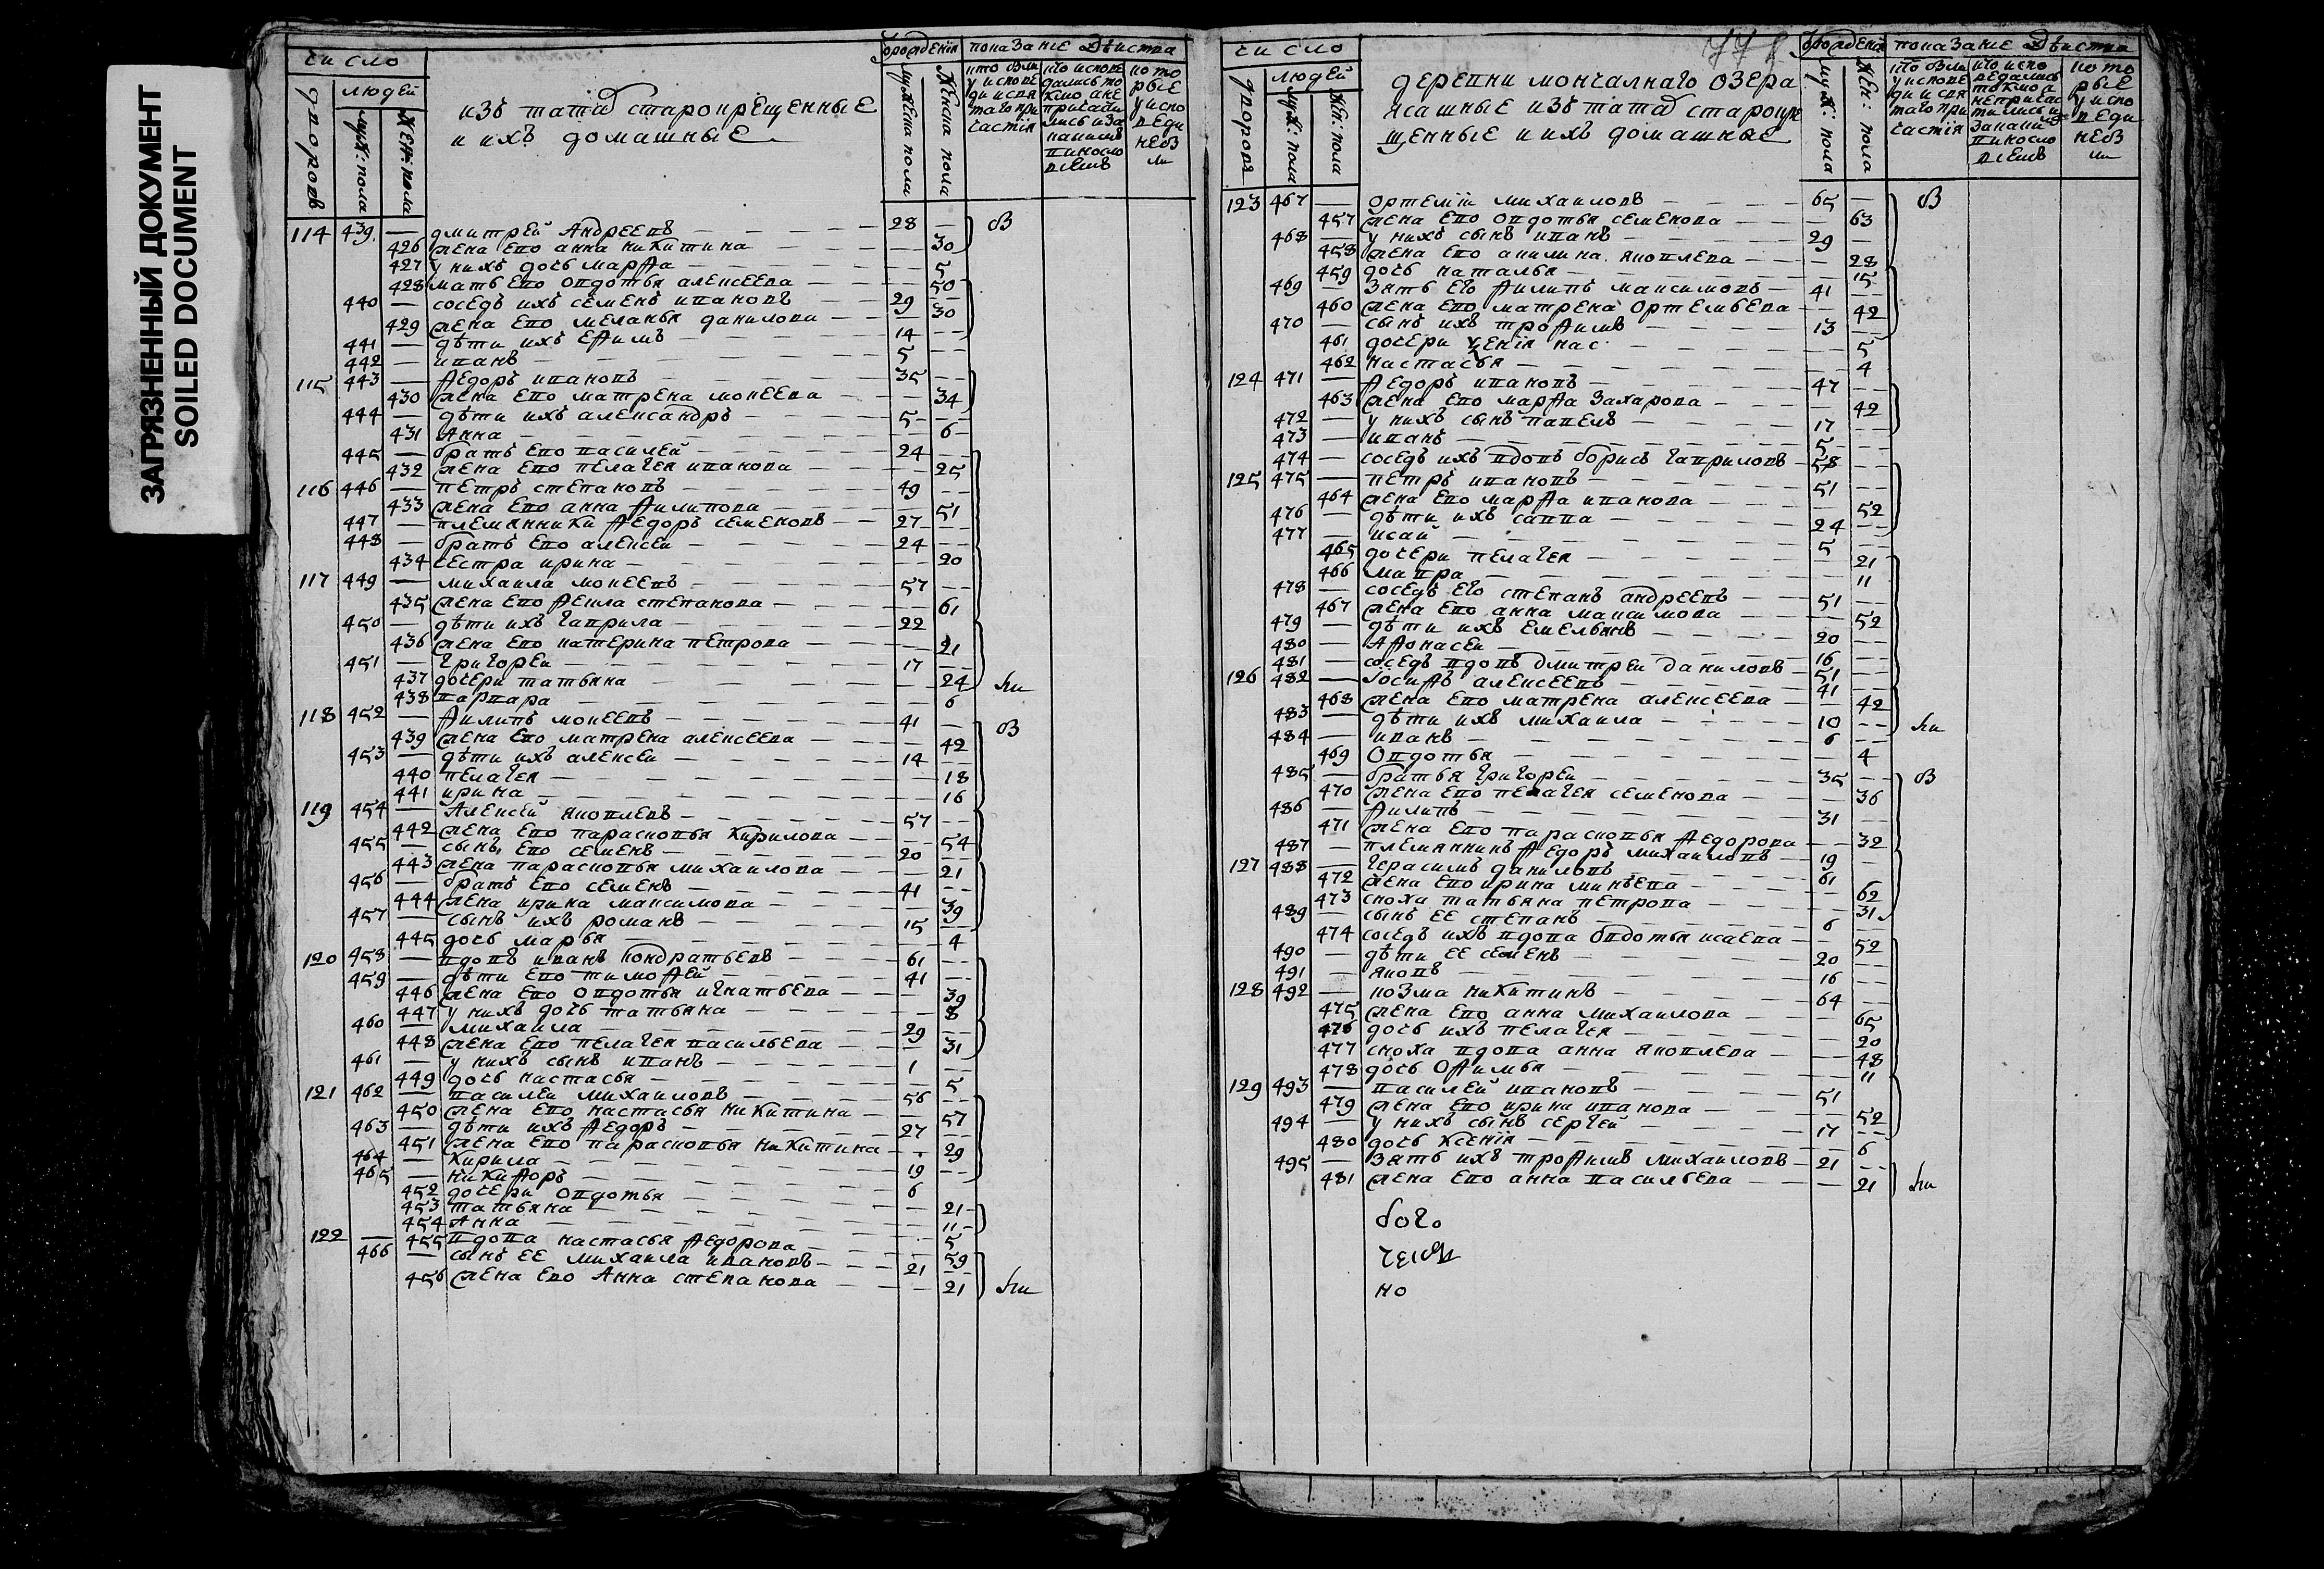 ЗАГРЯЗНЕННЫЙ ДОКУМЕНТ
SOILED DOCUMENT
число
людей
дворовъ
муж: пола
жен: пола
изъ татаръ старокрещенные
и ихъ домашные
показание действа
мужена пола
женска пола
114 439 — дмитрей Андреевъ 28 — бы
426 жена ево анна никитина 30
427 у нихъ дочь марѳа 5
428 мать ево овдотья алексеева 50
440 — соседъ ихъ семенъ ивановъ 29
429 жена ево меланья данилова 30
441 — дѣти ихъ ефимъ 14
442 — иванъ 5
115 443 — ѳедоръ ивановъ 35
430 жена ево матрена мокеева 34
444 — дѣти ихъ александръ 5
431 Анна 6
445 — братъ ево василей 24
432 жена ево пелагея иванова 25
116 446 — петръ степановъ 49
433 жена ево анна ѳилипова 51
447 — племянники ѳедоръ семеновъ 27
448 — братъ ево алексеи 24
434 сестра ирина 20
117 449 — михаила мокеевъ 57
435 жена ево ѳекла степанова 61
450 — дѣти ихъ гаврила 22
436 жена ево катерина петрова 21
451 — григореи 17
437 дочери татьяна 24
438 варвара 6
118 452 — ѳилипъ мокеевъ 41 бы
439 жена ево матрена алексеева 42
453 — дѣти ихъ алексеи 14
440 пелагея 18
441 ирина 16
119 454 — Алексей яковлевъ 57
442 жена ево парасковья кирилова 54
455 — сынъ ево семенъ 20
443 жена парасковья михаилова 21
456 — братъ ево семенъ 41
444 жена ирина максимова 39
457 — сынъ ихъ романъ 15
445 дочь марья 4
120 458 — вдовъ иванъ кондратьевъ 61
459 — дѣти ево тимоѳей 41
446 жена ево овдотья игнатьева 39
447 у нихъ дочь татьяна 8
460 — михаила 29
448 жена ево пелагея васильева 31
461 — у нихъ сынъ иванъ 1
449 дочь настасья 5
121 462 — василеи михаиловъ 56
450 жена ево настасья никитина 57
463 — дѣти ихъ ѳедоръ 27
451 жена ево парасковья никитина 29
464 — кирила 19
465 — никиѳоръ 6
452 дочери овдотья 21
453 татьяна 11
454 Анна 5
122 — 455 вдова настасья ѳедорова 59
466 — сынъ ее михаила ивановъ 21
456 жена ево Анна степанова 21
число
людей
дворовъ
муж: пола
жен: пола
деревни мончалнаго озера
ясашные изъ татаръ старокре
щенные и ихъ домашные
показание действа
муж: пола
жен: пола
123 467 — ортемiи михаиловъ 65 — бы
457 жена ево овдотья семенова 63
468 — у нихъ сынъ иванъ 29
458 жена ево акилина яковлева 28
459 дочь наталья 15
469 — зять его ѳилипъ максимовъ 41
460 жена ево матрена ортемьева 42
470 — сынъ ихъ троѳимъ 13
461 дочери ксенiя нас 5
462 настасья 4
124 471 — ѳедоръ ивановъ 47
463 жена ево марѳа захарова 42
472 — у нихъ сынъ павелъ 17
473 — иванъ 5
474 — соседъ ихъ вдовъ борисъ гавриловъ 58
125 475 — петръ ивановъ 51
464 жена ево марѳа иванова 52
476 — дѣти ихъ савва 24
477 — исаи 5
465 дочери пелагея 21
466 мавра 11
478 — соседъ его степанъ андреевъ 51
467 жена ево анна максимова 52
479 — дѣти ихъ емельянъ 20
480 — Аѳонасеи 16
481 — соседъ вдовъ дмитреи даниловъ 51
126 482 — Iосиѳъ алексеевъ 41
468 жена ево матрена алексеева 42
483 — дѣти ихъ михаила 10
484 — иванъ 6
469 Овдотья 4
485 — братья григореи 35 бы
470 жена ево пелагея семенова 36
486 — ѳилипъ 31
471 жена ево парасковья ѳедорова 32
487 — племянникъ ѳедоръ михаиловъ 19
127 488 — герасимъ даниловъ 61
472 жена ево ирина минѣева 62
473 сноха татьяна петрова 31
489 — сынъ ее степанъ 6
474 соседъ ихъ вдова овдотья исаева 52
490 — дѣти ее семенъ 20
491 — яковъ 16
128 492 — козма никитинъ 64
475 жена ево анна михаилова 65
476 дочь ихъ пелагея 20
477 сноха вдова анна яковлева 48
478 дочь Оѳимья 11
129 493 — василей ивановъ 51
479 жена ево ирина иванова 52
494 — у нихъ сынъ сергей 17
480 дочь ксенiя 6
495 — зять ихъ троѳимъ михаиловъ 21
481 жена ево анна васильева 21
бого
но